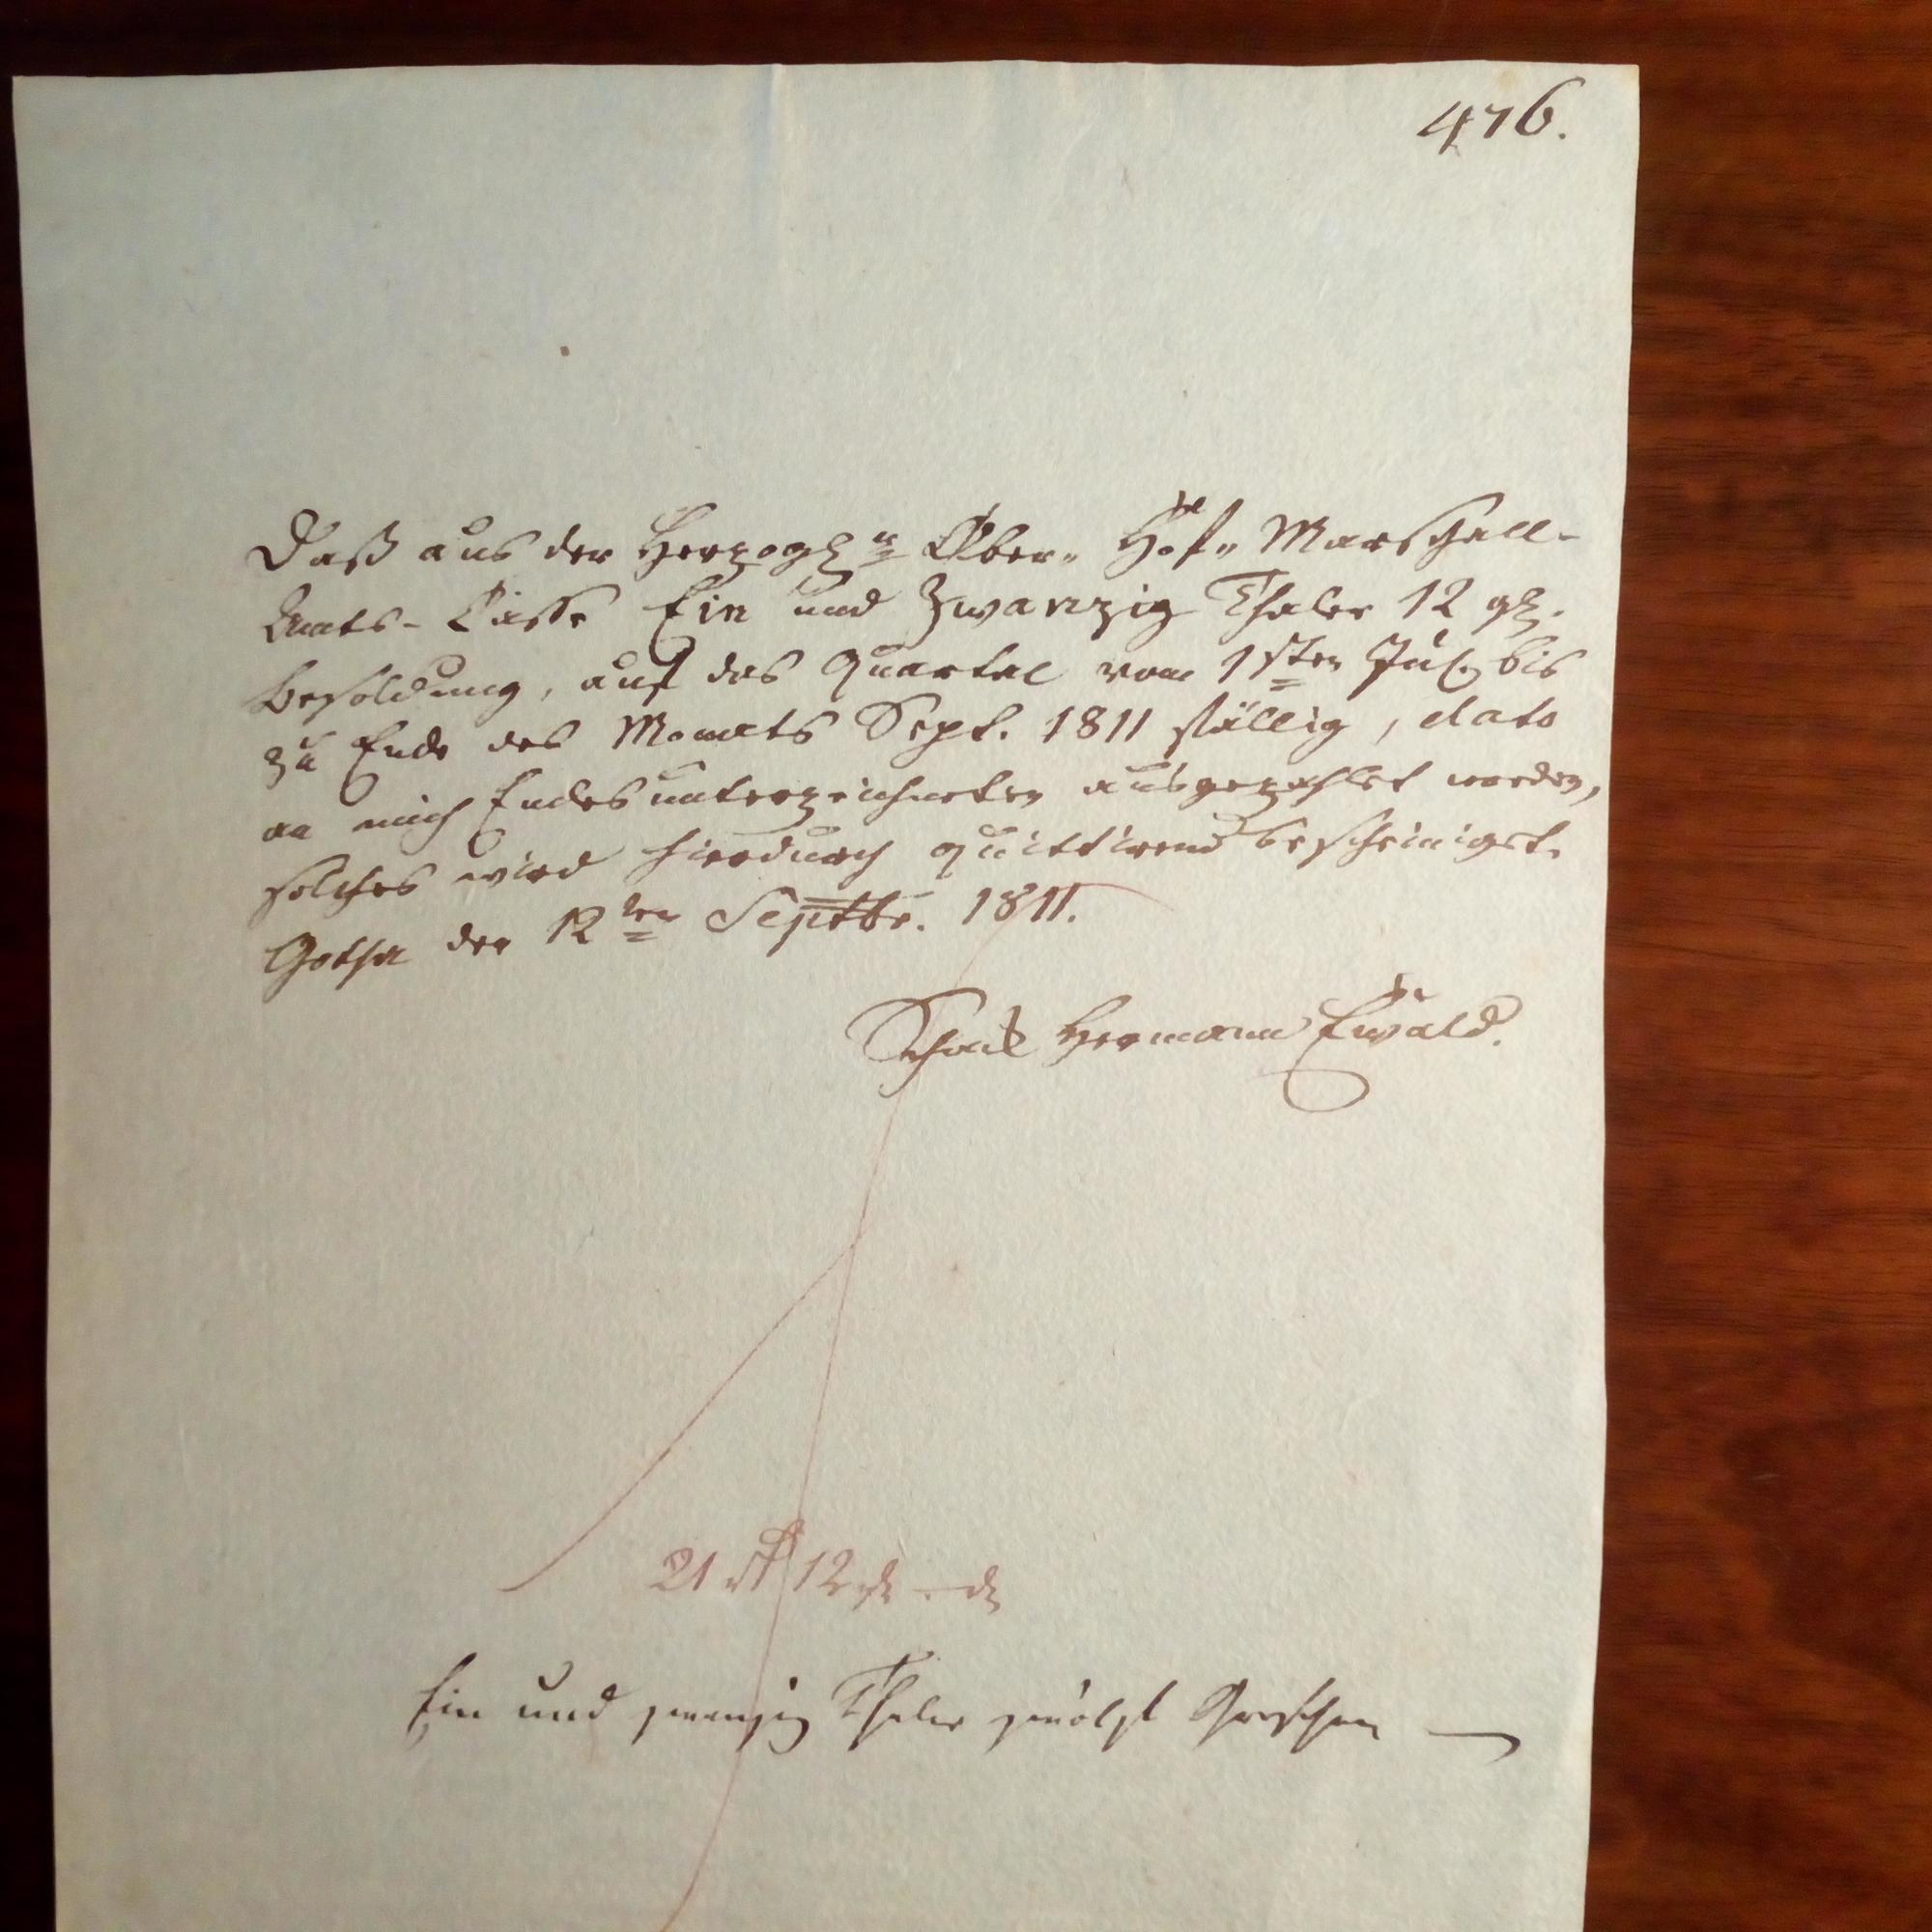 476.
Daß aus der Herzogl. Ober- Hof- Marschall-
Amts- Casse Ein und Zwanzig Thaler 12 gl.
Besoldung, auf das Quartal vom 1sten Jul. bis
zu Ende des Monats Sept. 1811 fällig, dato
an mich Endesunterzeichneten ausgezahlet worden,
solches wird hierdurch quittirend bescheiniget.
Gotha den 12ten Septbr. 1811.
Schack Hermann Ewald.
21 rt 12 gl - d
Ein und zwanzig Thaler zwölf Groschen —